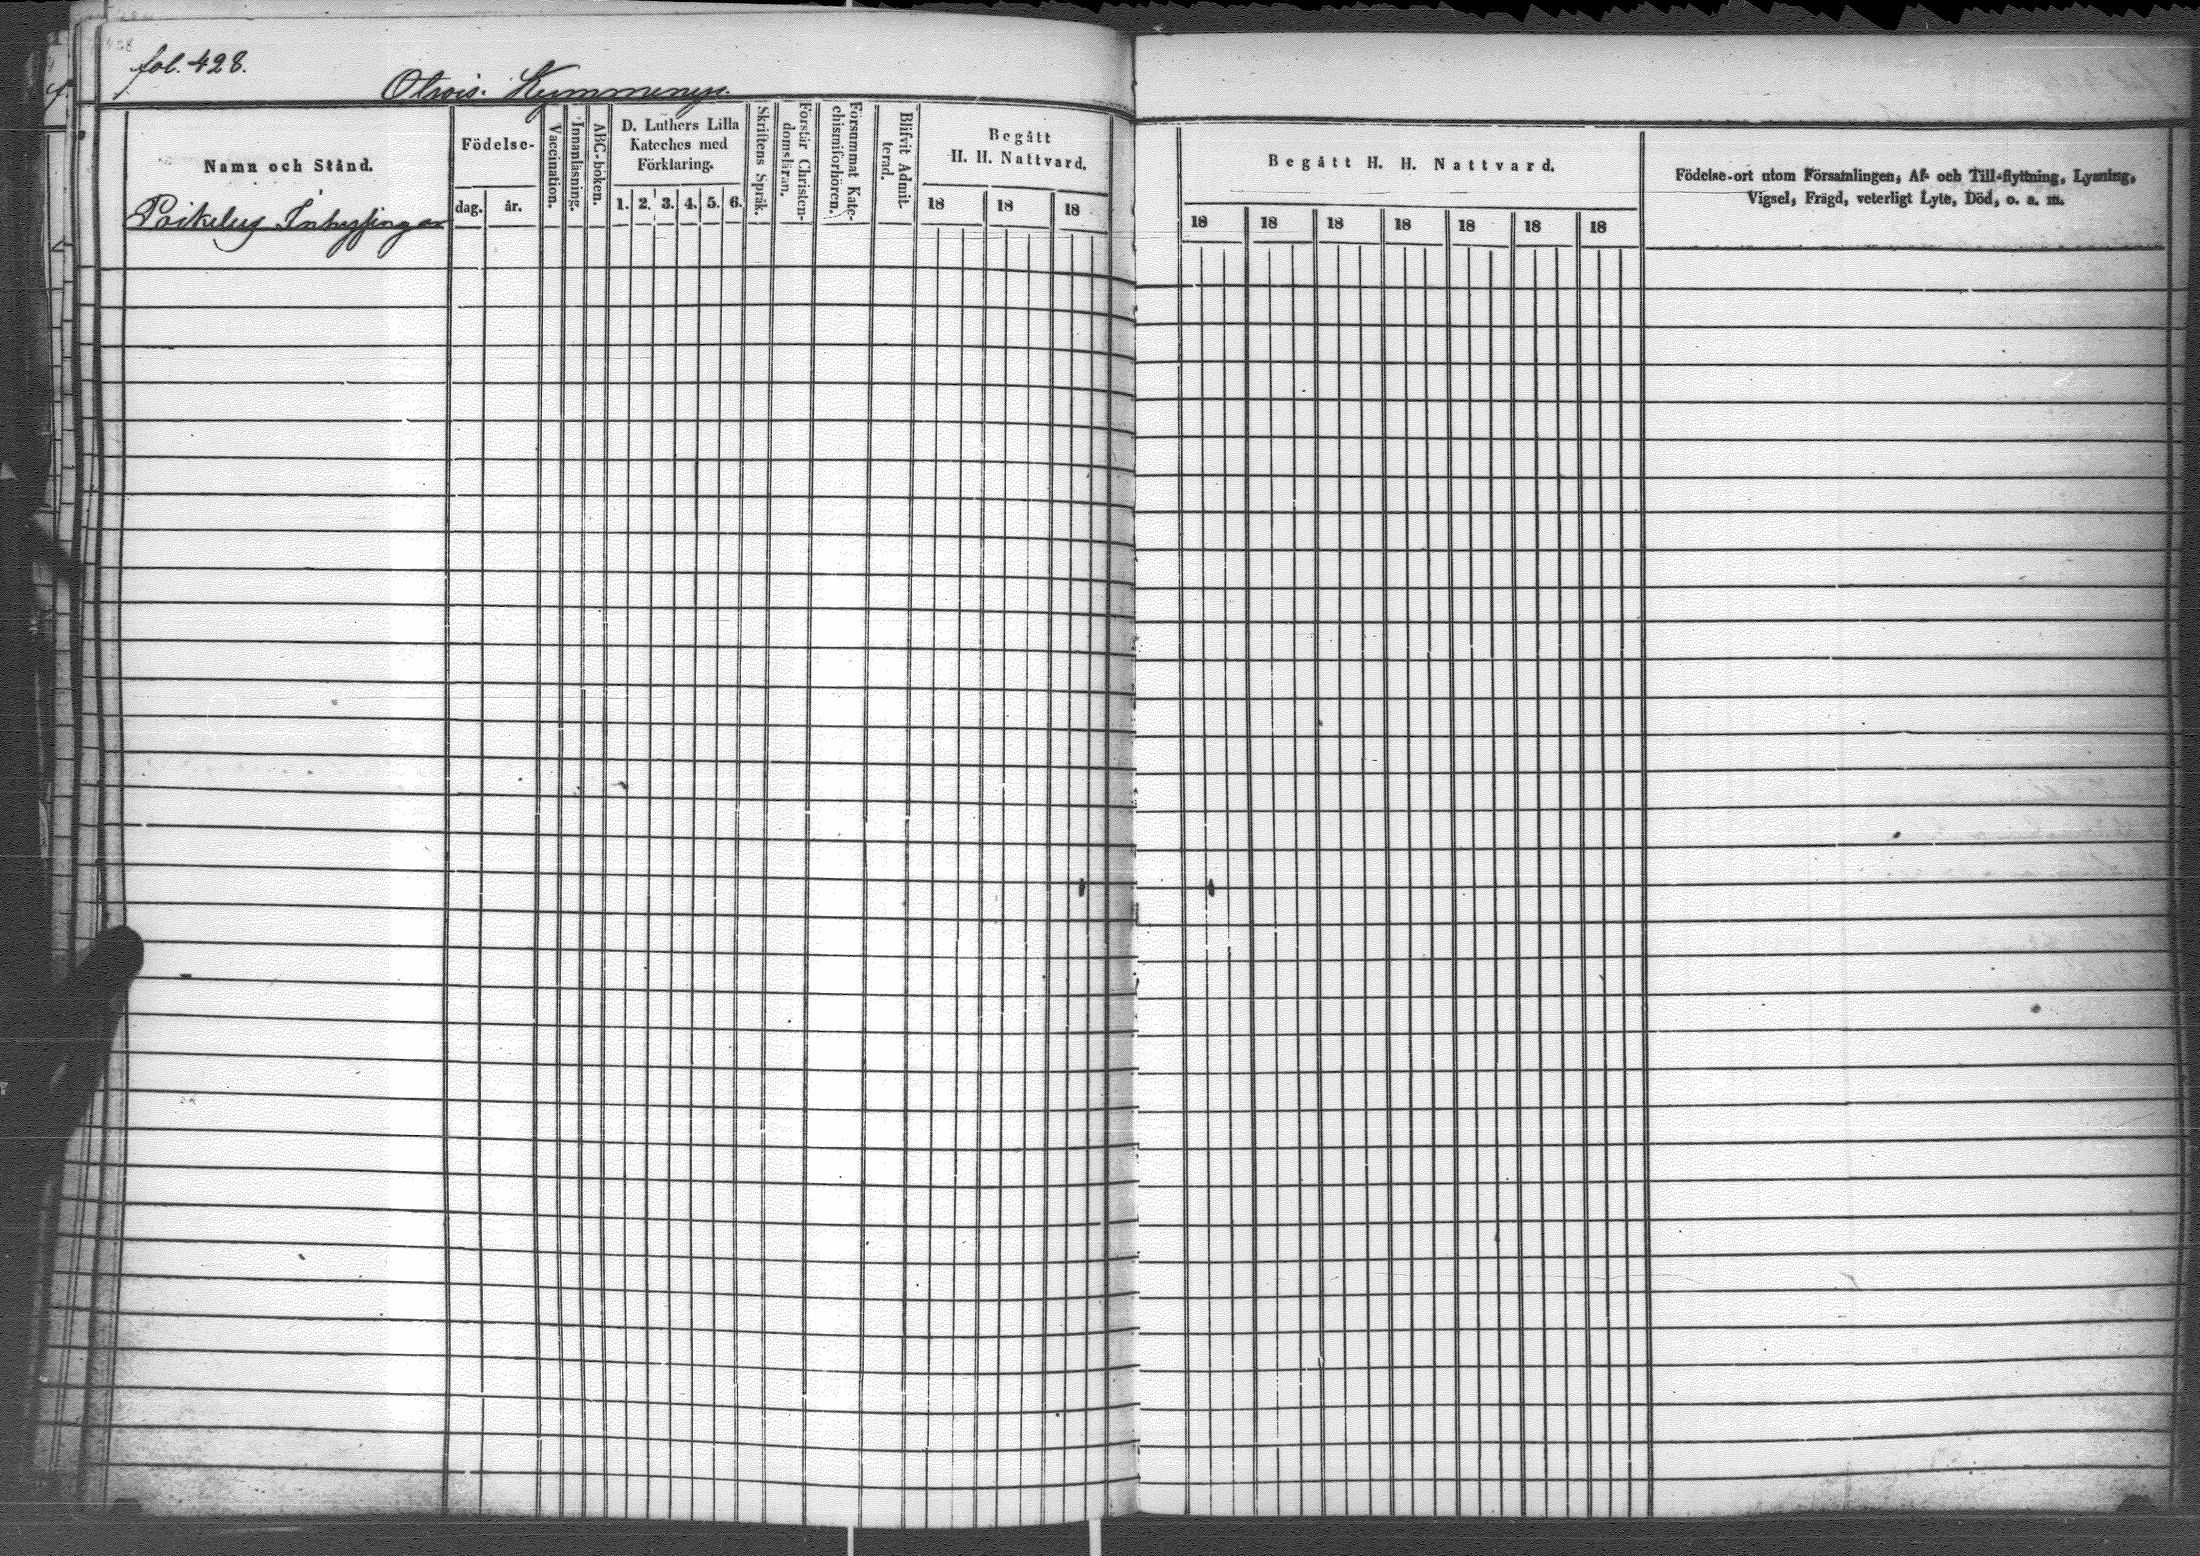 fol. 428.
Otsois. Kymmenys.
Namn och Stånd.
Födelse-
dag.
år.
Vaccination.
Innanläsning.
ABC-boken.
D. Luthers Lilla
Kateches med
Förklaring.
1. 2. 3. 4. 5. 6.
Skriftens Språk.
Förstår Christen-
domsläran.
Försummat Kate-
chismiförhören.
Blifvit Admit-
terad.
Begått
H. H. Nattvard.
18 18 18
Begått H. H. Nattvard.
18 18 18 18 18 18 18
Födelse-ort utom Församlingen, Af- och Till-flyttning, Lysning,
Vigsel, Frägd, veterligt Lyte, Död, o. a. m.
Inhysingar